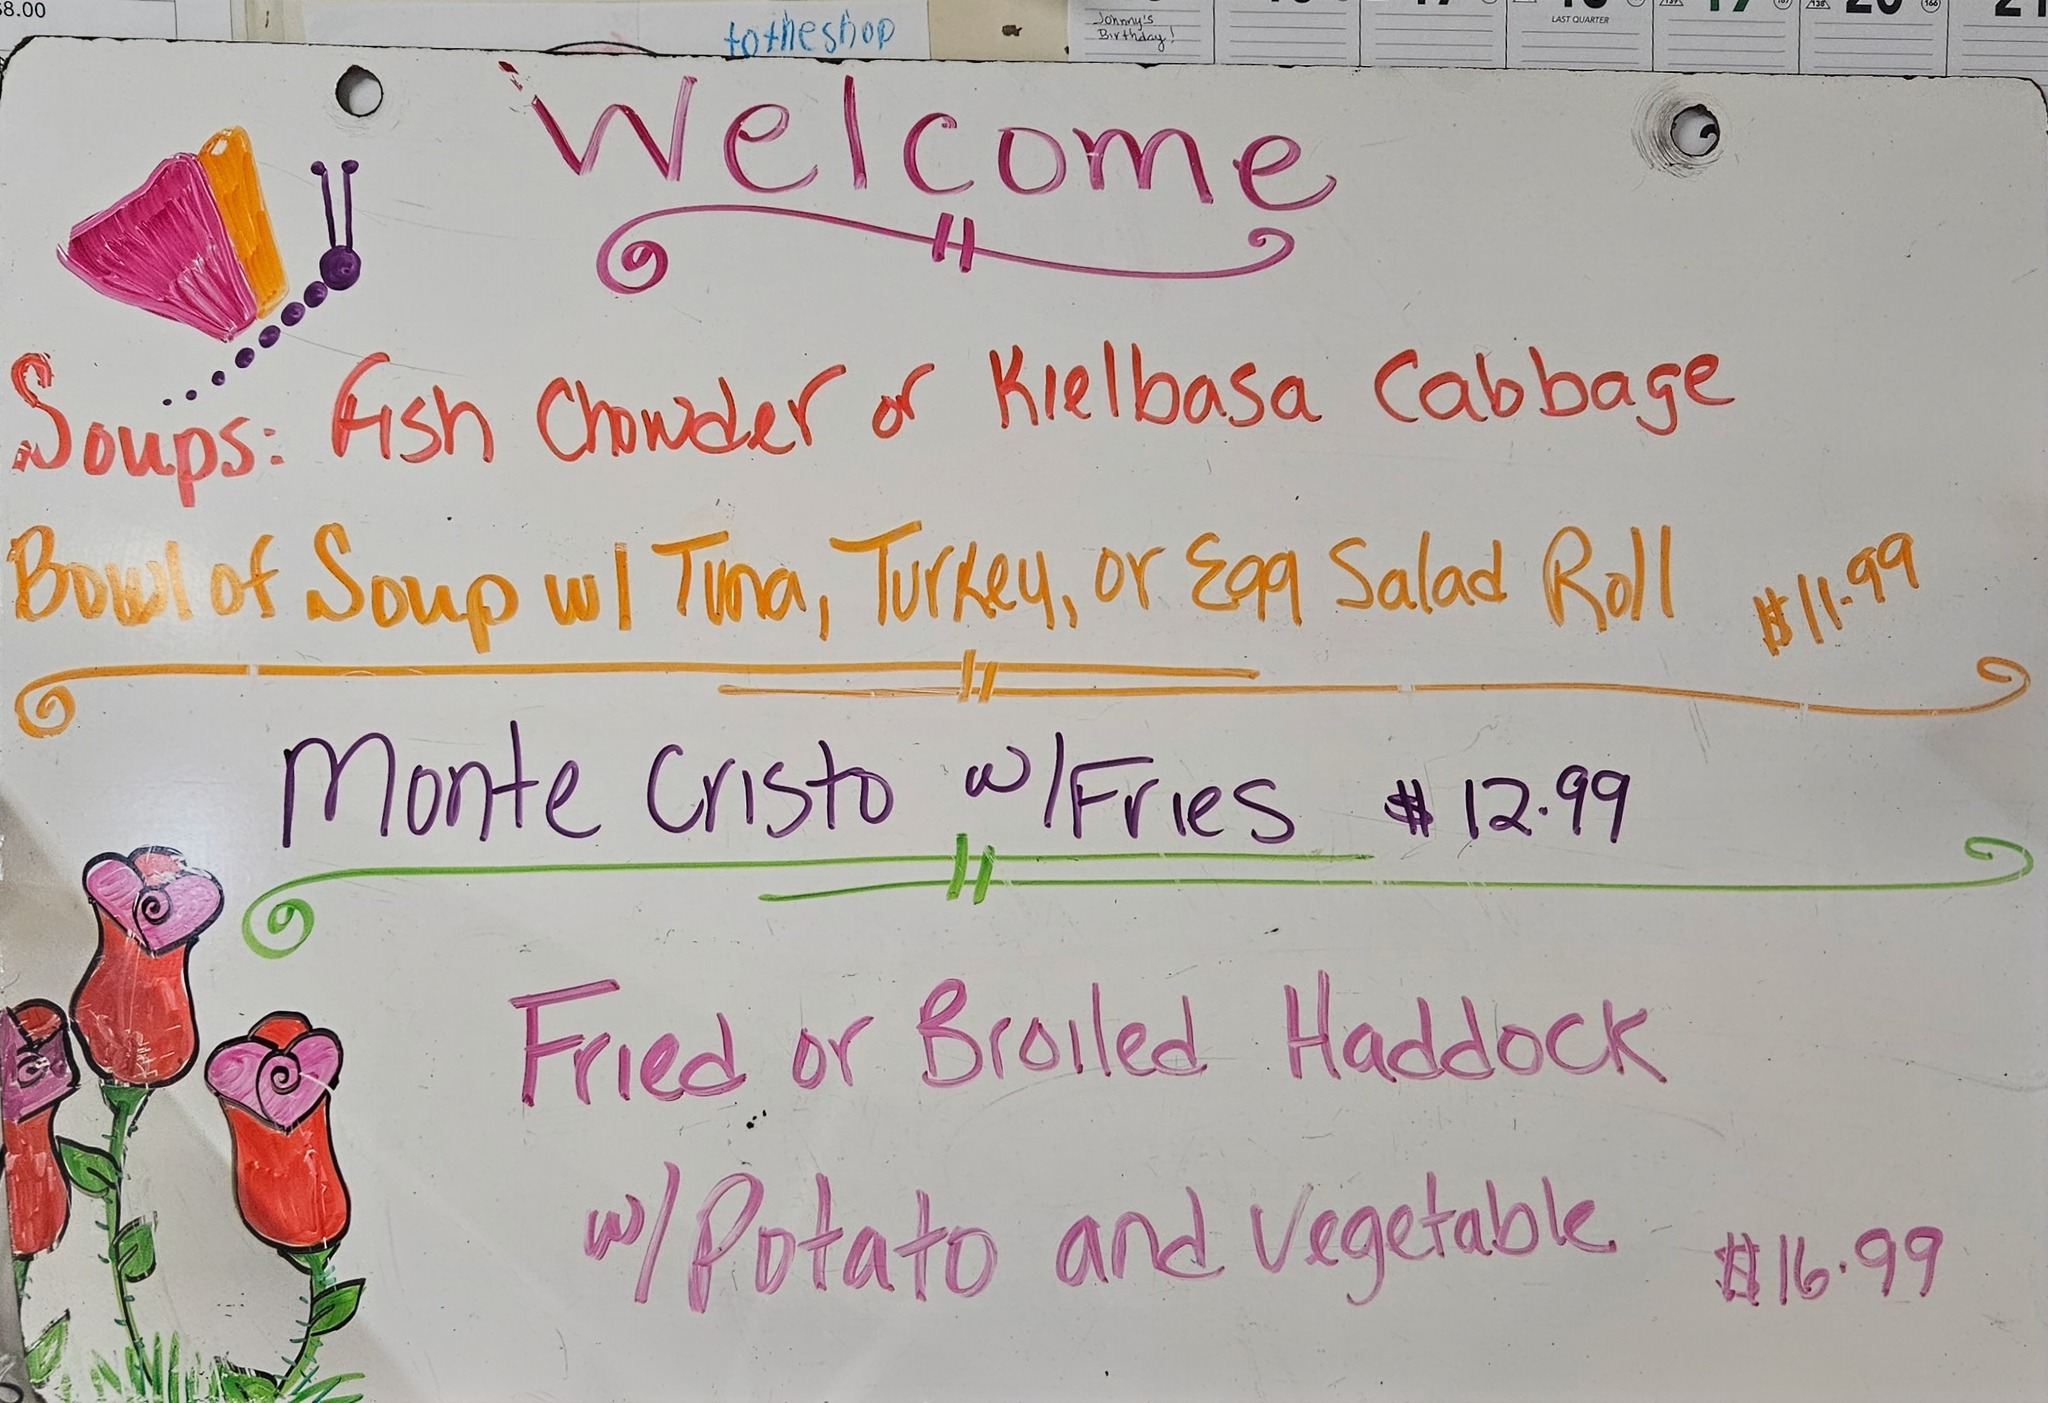 8.00
totheshop
Johnny's
Birthday!
LAST QUARTER
19
20
21
Welcome
Soups: Fish Chowder or Kielbasa Cabbage
Bowl of Soup w/ Tuna, Turkey, or Egg Salad Roll $11.99
Monte Cristo w/Fries $12.99
Fried or Broiled Haddock
w/Potato and Vegetable $16.99